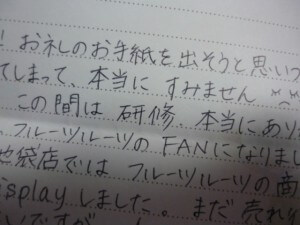 ! お礼のお手紙を出そうと思いつ
てしまって、本当に すみません
この間は 研修 本当にあり
、フルーツルーツの FANになりまし
池袋店では フルーツルーツの商
isplay しました。まだ 売れ
いですが